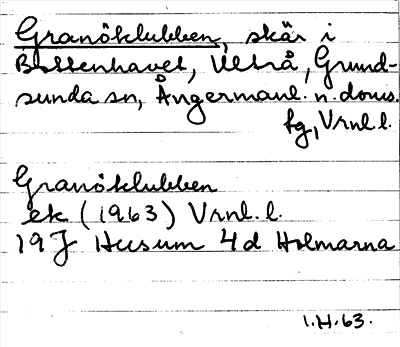 Granöklubben, skär i
Bottenhavet, Ultrå, Grund-
sunda sn, Ångermanl. n. doms.
fg, Vrnl. l.
Granöklubben
ek (1963) Vrnl. l.
19J Husum 4d Holmarna
I.H.63.